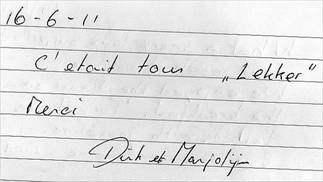 16-6-11
C'etait tous „Lekker"
Merci
Dirk et Marjolijn